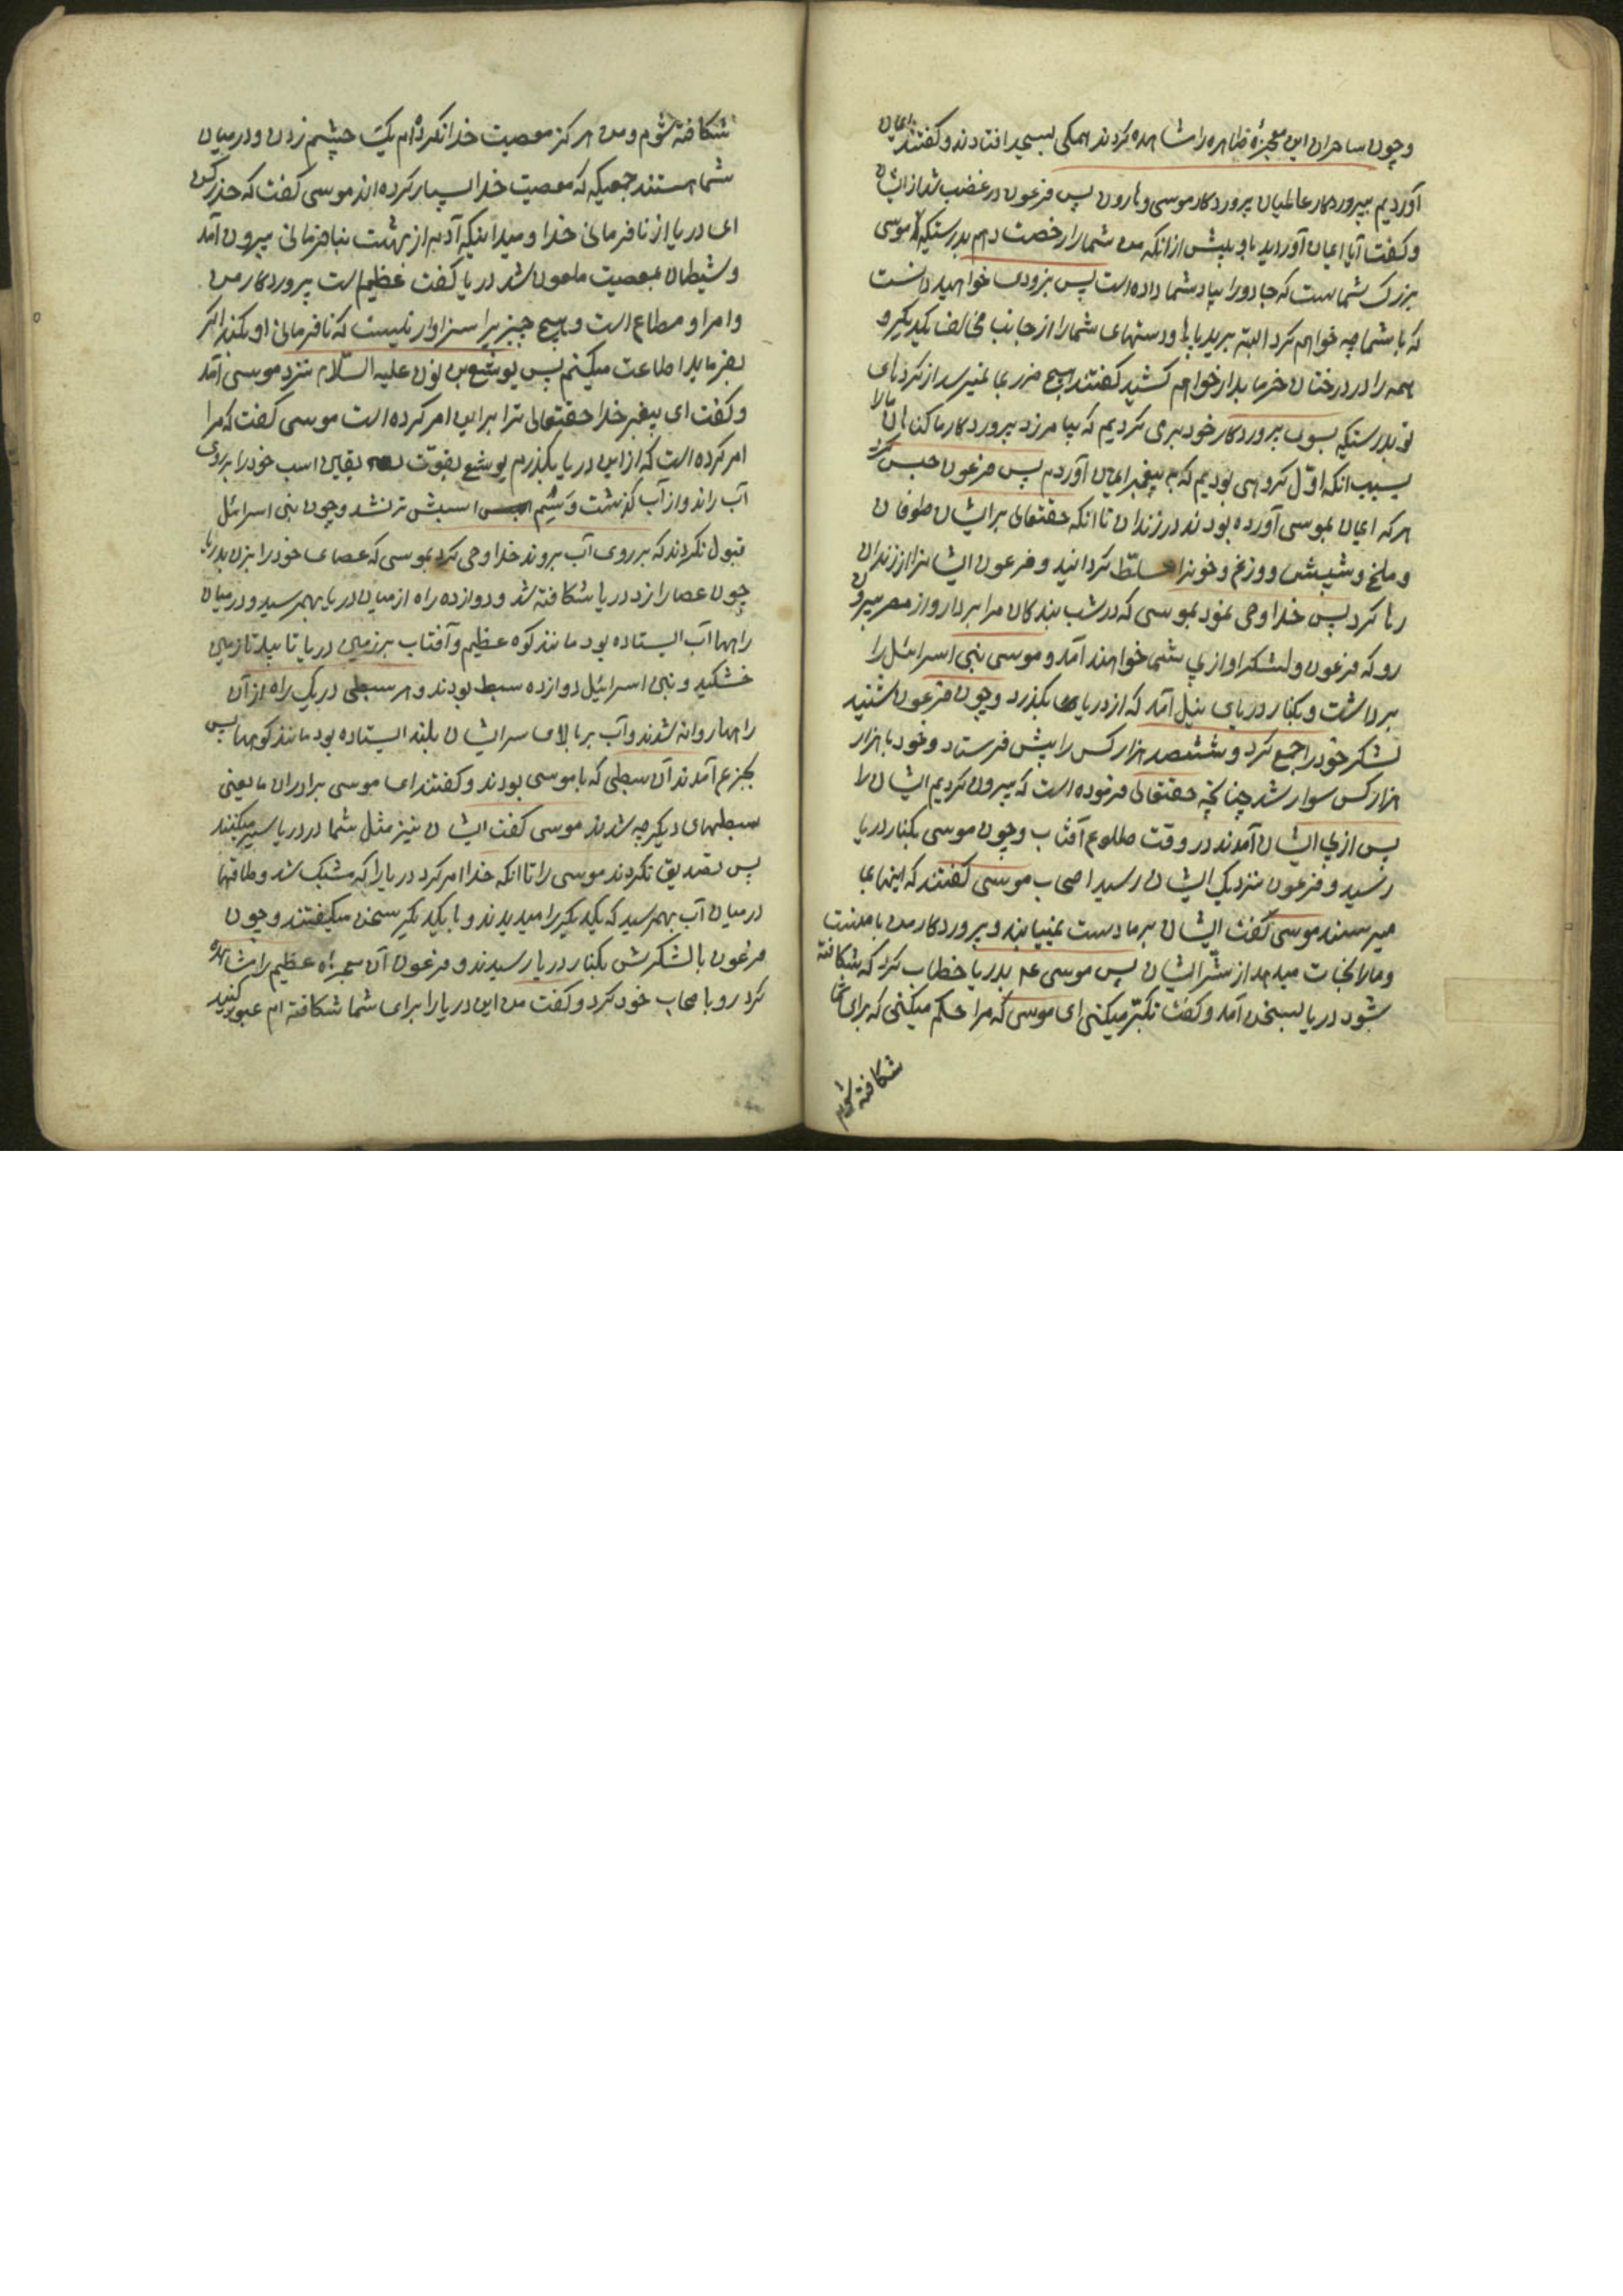 و چون ساحران این معجزهٔ ظاهره را مشاهده کردند همگی بسجده افتادند و گفتند ایمان
آوردیم بپروردکار عالمیان پروردکار موسی و هارون پس فرعون در غضب شد از ایشان
و گفت آیا ایمان آوردید باو پیش از انکه من شما را رخصت دهم بدرستیکه موسی
بزرگ شماست که جادو را بیاد شما داده است پس بزودی خواهید دانست
که با شما چه خواهم کرد البته ببرید پاها و دستهای شما را از جانب مخالف یکدیگر و
همه را در درختان خرما بدار خواهم کشید گفتند هیچ ضرر بما نمیرسد از کردهای
تو بدرستیکه بسوی پروردکار خود برمی گردیم که بیامرزد پروردکار ما کناهان ما را
بسبب انکه اوّل کروهی بودیم که به پیغمبر ایمان آوردیم پس فرعون حبس کرد
هر که ایمان بموسی آورده بودند در زندان تا انکه حقتعالی بر ایشان طوفان
و ملخ و شپش و وزغ و خونرا مسلّط کردانید و فرعون ایشانرا از زندان
رها کرد پس خدا وحی نمود بموسی که در شب بندکان مرا بردار و از مصر بیرون
رو که فرعون و لشکر او از پی شما خواهند آمد و موسی بنی اسرائیل را
برداشت و بکنار دریای نیل آمد که از دریا بکذرد و چون فرعون شنید
لشکر خود را جمع کرد و ششصد هزار کس را پیش فرستاد و خود با هزار
هزار کس سوار شد چنانچه حقتعالی فرموده است که بیرون کردیم ایشان را
پس از پی ایشان آمدند در وقت طلوع آفتاب و چون موسی بکنار دریا
رسید و فرعون نزدیک ایشان رسید اصحاب موسی گفتند که اینها بما
میرسند موسی گفت ایشان بر ما دست نمییابند و پروردکار من با منست
و ما را نجات میدهد از شرّ ایشان پس موسی عم بدریا خطاب کرد که شکافته
شود دریا بسخن آمد و گفت تکبّر میکنی ای موسی که مرا حکم میکنی که برای شما
شکافته شوم
شکافته شوم و من هرکز معصیت خدا نکرده‌ام یک چشم زدن و در میان
شما هستند جمعیکه که معصیت خدا بسیار کرده‌اند موسی گفت که حذر کن
ای دریا از نافرمانی خدا و میدانیکه آدم از بهشت بنافرمانی بیرون آمد
و شیطان بمعصیت ملعون شد دریا گفت عظیم است پروردکار من
و امر او مطاع است و هیچ چیز یرا سزاوار نیست که نافرمانی او بکند اکر
بفرماید اطاعت میکنم پس یوشع بن نون علیه السّلام نزد موسی آمد
و گفت ای پیغمبر خدا حقتعالی ترا براین امر کرده است موسی گفت که مرا
امر کرده است که از این دریا بکذرم یوشع بقوّت یقین اسب خود را بر روی
آب راند و از آب کذشت و سُم اسبش تر نشد و چون بنی اسرائیل
قبول نکردند که بر روی آب بروند خدا وحی کرد بموسی که عصای خود را بزن بدریا
چون عصا را زد دریا شکافته شد و دوازده راه از میان دریا بهم رسید و در میان
راهها آب ایستاده بود مانند کوه عظیم و آفتاب بر زمین دریا تابید تا زمین
خشکید و بنی اسرائیل دوازده سبط بودند و هر سبطی در یک راه از آن
راهها روانه شدند و آب بر بالای سر ایشان بلند ایستاده بود مانند کوهها پس
بجزع آمدند آن سبطی که با موسی بودند و گفتند ای موسی برادران ما یعنی
سبطهای دیکر چه شدند موسی گفت ایشان نیز مثل شما در دریا سیر میکنند
پس تصدیق نکردند موسی را تا انکه خدا امر کرد دریا را که مشبک شد و طاقها
در میان آب بهم رسید که یکدیکر را میدیدند و با یکدیکر سخن میگفتند و چون
فرعون با لشکرش بکنار دریا رسیدند و فرعون آن معجزه عظیم را مشاهده
کرد رو باصحاب خود کرد و گفت من این دریا را برای شما شکافته ام عبور کنید